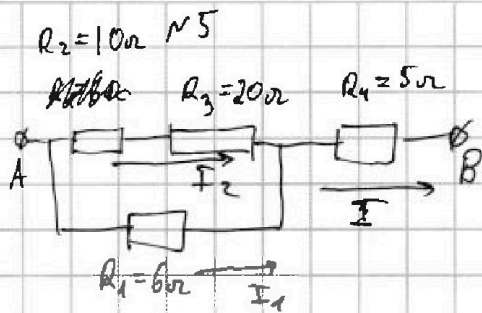 R₂ = 10Ω №5
R₃ = 20Ω R₄ = 5Ω
A I₂ I B
R₁ = 6Ω I₁